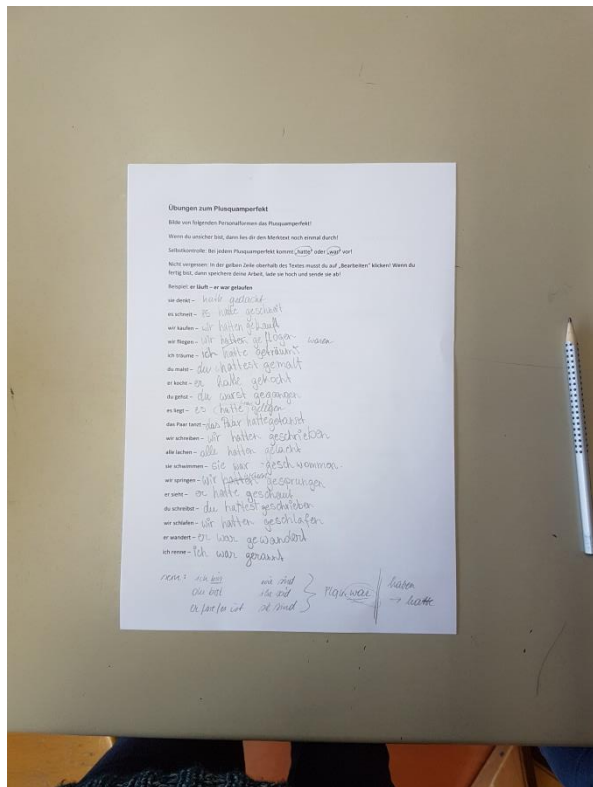 Übungen zum Plusquamperfekt
Bilde von folgenden Personalformen das Plusquamperfekt!
Wenn du unsicher bist, dann lies dir den Merktext noch einmal durch!
Selbstkontrolle: Bei jedem Plusquamperfekt kommt „hatte“ oder „war“ vor!
Nicht vergessen: In der gelben Zeile oberhalb des Textes musst du auf „Bearbeiten“ klicken! Wenn du
fertig bist, dann speichere deine Arbeit, lade sie hoch und sende sie ab!
Beispiel: er läuft – er war gelaufen
sie denkt – hatte gedacht
es schneit – es hatte geschneit
wir kaufen – wir hatten gekauft
wir fliegen – wir hatten geflogen waren
ich träume – ich hatte geträumt
du malst – du hattest gemalt
er kocht – er hatte gekocht
du gehst – du warst gegangen
es liegt – es hatte gelegen
das Paar tanzt – das Paar hatte getanzt
wir schreiben – wir hatten geschrieben
alle lachen – alle hatten gelacht
sie schwimmen – sie war geschwommen
wir springen – wir hatten gesprungen
er sieht – er hatte geschaut
du schreibst – du hattest geschrieben
wir schlafen – wir hatten geschlafen
er wandert – er war gewandert
ich renne – ich war gerannt
ich bin wir sind
du bist ihr seid
er/sie/es ist sie sind
Plqu: war
haben
→ hatte